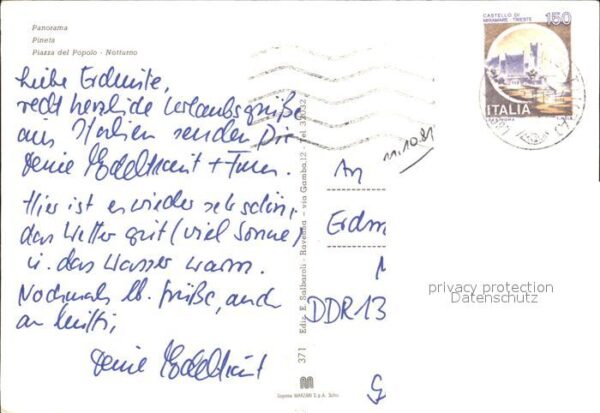 Panorama
Pineta
Piazza del Popolo - Notturno
CASTELLO DI
MIRAMARE - TRIESTE
150
ITALIA
Liebe Erdmute,
recht herzliche Urlaubsgrüße
aus Italien senden Dir
Deine Edeltraut +
Hier ist es wieder sehr schön,
das Wetter gut (viel Sonne)
u. das Wasser warm.
Nochmals lb. Grüße, auch
an Mutti,
Deine Edeltraut
371 Ediz. E. Salbaroli - Ravenna - via Gamba, 12 - Tel. 32032
An
Erdm
DDR 13
G
privacy protection
Datenschutz